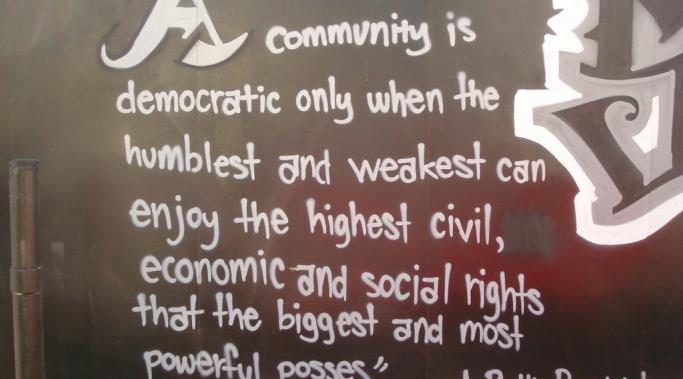 A community is
democratic only when the
humblest and weakest can
enjoy the highest civil,
economic and social rights
that the biggest and most
powerful posses"